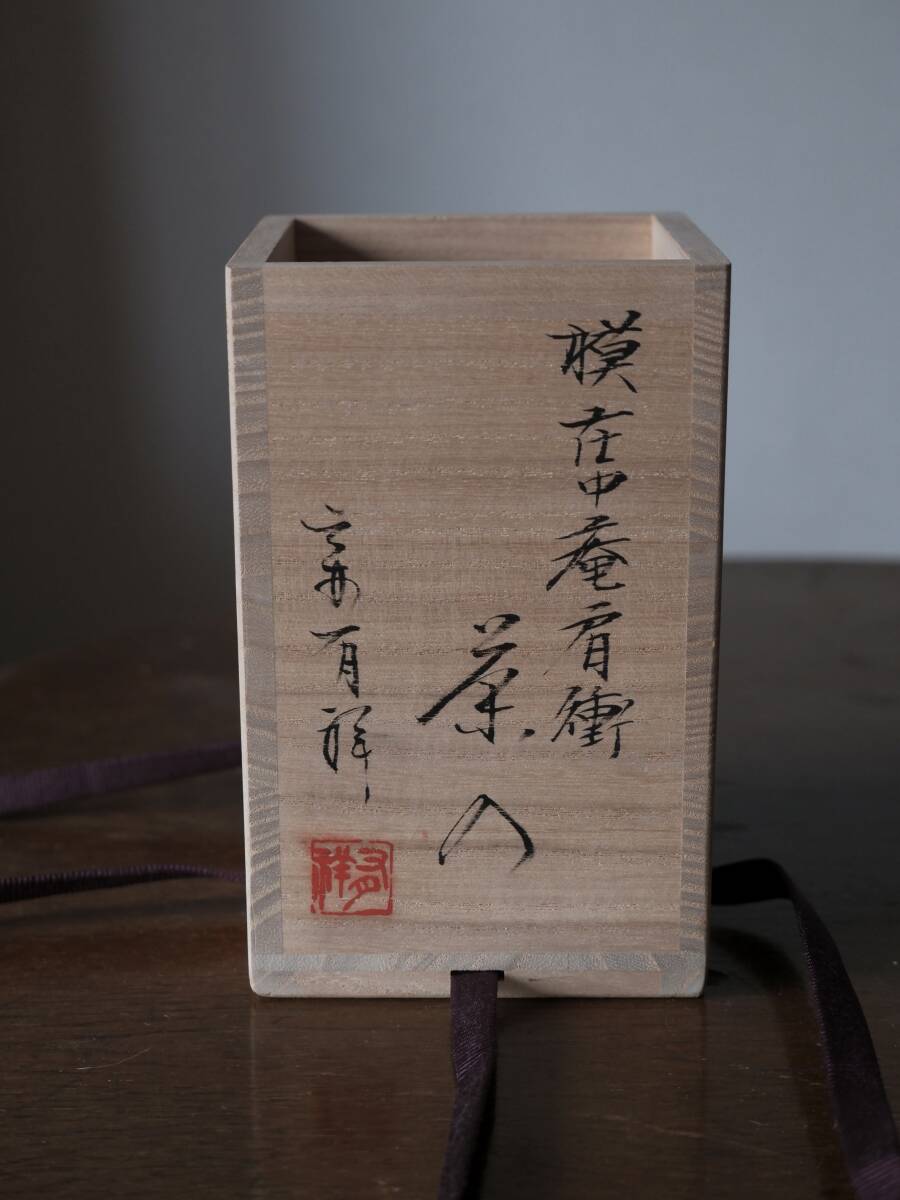 模 在中庵肩衝
茶入
有祥
有祥